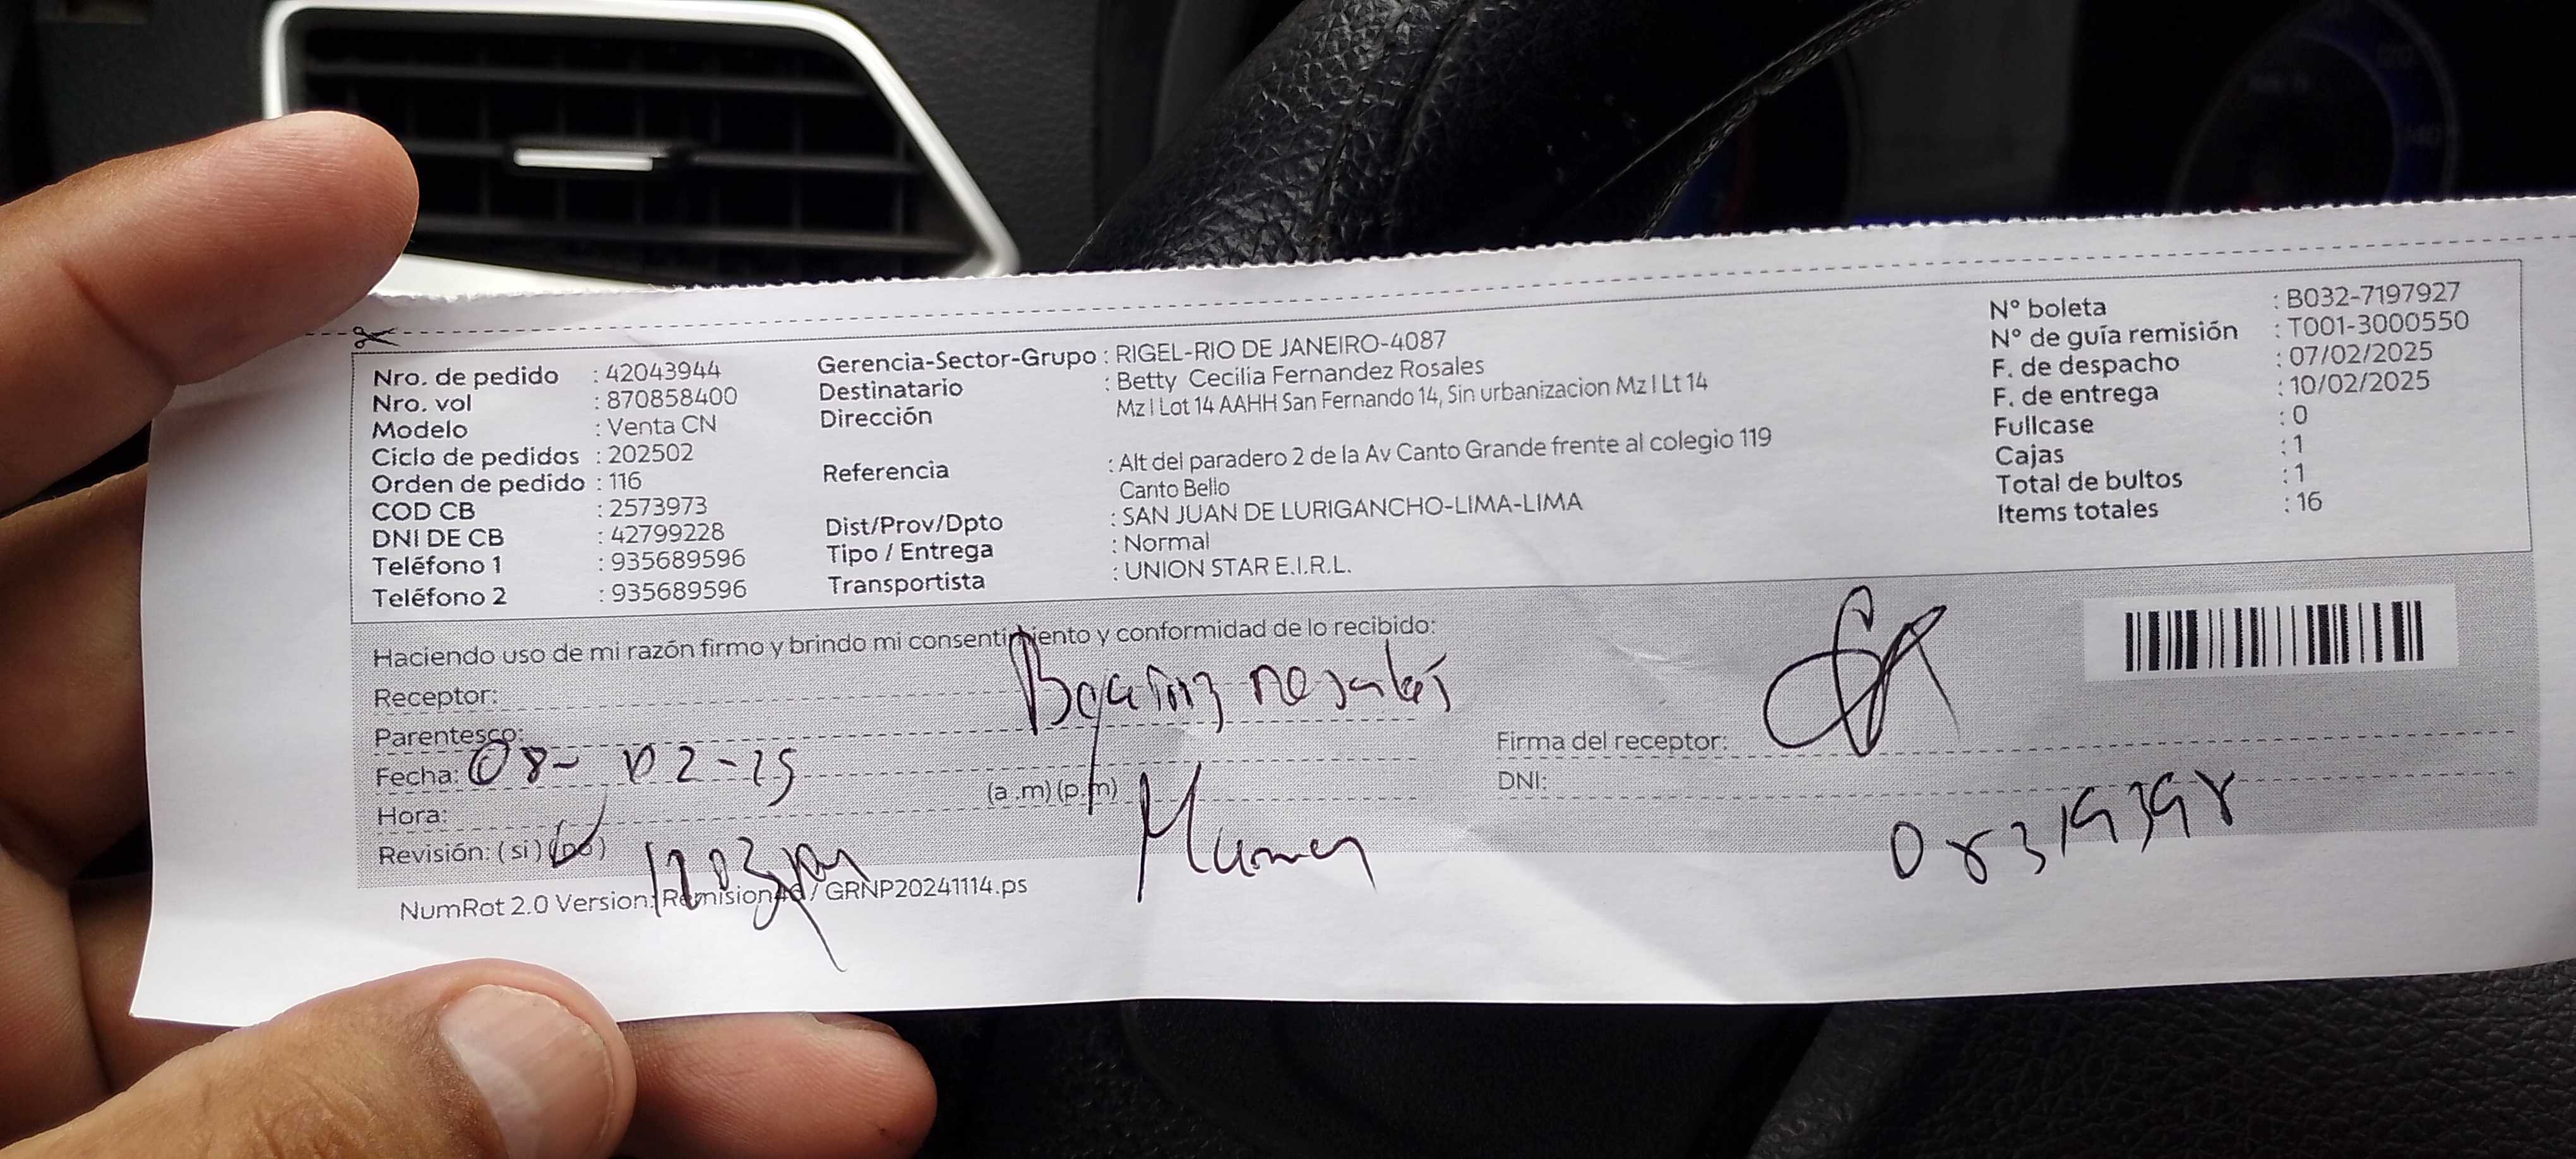 Nro. de pedido : 42043944
Nro. vol : 870858400
Modelo : Venta CN
Ciclo de pedidos : 202502
Orden de pedido : 116
COD CB : 2573973
DNI DE CB : 42799228
Teléfono 1 : 935689596
Teléfono 2 : 935689596
Gerencia-Sector-Grupo : RIGEL-RIO DE JANEIRO-4087
Destinatario : Betty Cecilia Fernandez Rosales
Dirección Mz I Lot 14 AAHH San Fernando 14, Sin urbanizacion Mz I Lt 14
Referencia : Alt del paradero 2 de la Av Canto Grande frente al colegio 119
Canto Bello
Dist/Prov/Dpto : SAN JUAN DE LURIGANCHO-LIMA-LIMA
Tipo / Entrega : Normal
Transportista : UNION STAR E.I.R.L.
N° boleta : B032-7197927
N° de guía remisión : T001-3000550
F. de despacho : 07/02/2025
F. de entrega : 10/02/2025
Fullcase : 0
Cajas : 1
Total de bultos : 1
Items totales : 16
Haciendo uso de mi razón firmo y brindo mi consentimiento y conformidad de lo recibido:
Receptor: rosales
Parentesco:
Fecha: 08- 02-25
Hora: (a .m) (p.m)
Revisión: ( si ) (no)
Firma del receptor:
DNI:
NumRot 2.0 Version: Remision4d / GRNP20241114.ps